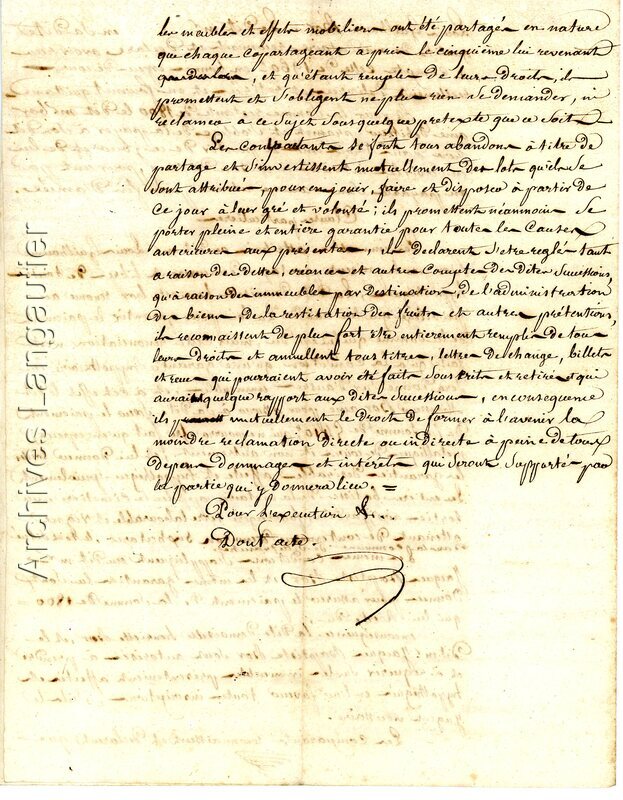 les meubles et effets mobiliers ont été partagés en nature
que chaque copartageant a pris le cinquième lui revenant
et qu'étant remplis de leurs droits, ils
promettent et s'obligent ne plus rien se demander, ni
reclamer à ce sujet sous quelque pretexte que ce soit
Les comparants se font tous abandon à titre de
partage et s'investissent mutuellement des lots qu'ils se
sont attribués, pour en jouir, faire et disposer à partir de
ce jour à leur gré et volonté ; ils promettent néanmoins se
porter pleine et entière garantie pour toutes les causes
anterieures aux présentes, ils declarent s'etre reglés tant
a raison des dettes, créances et autres comptes des dites successions,
qu'à raison des immeubles par destination, de l'administration
des biens, de la restitution des fruits et autres prétentions,
ils reconnaissent de plus fort etre entierement remplis de tous
leurs droits et annullent tous titres, lettres de change, billets
et reçus qui pourraient avoir été faits souscrits et retirés et qui
auraient quelque rapport aux dites successions, en consequence
ils mutuellement le droit de former à l'avenir la
moindre reclamation directe ou indirecte à peine de tous
depens dommages et intérêts qui seront supportés par
la partie qui y donnera lieu. =
Pour l'execution &..
Dont acte.
Archives Langautier